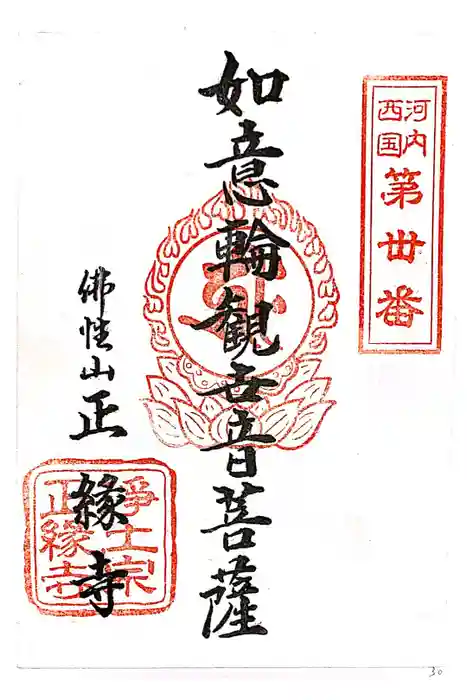 河内
西国
第丗番
如意輪観世音菩薩
佛性山正緣寺
淨土宗
正緣寺
30